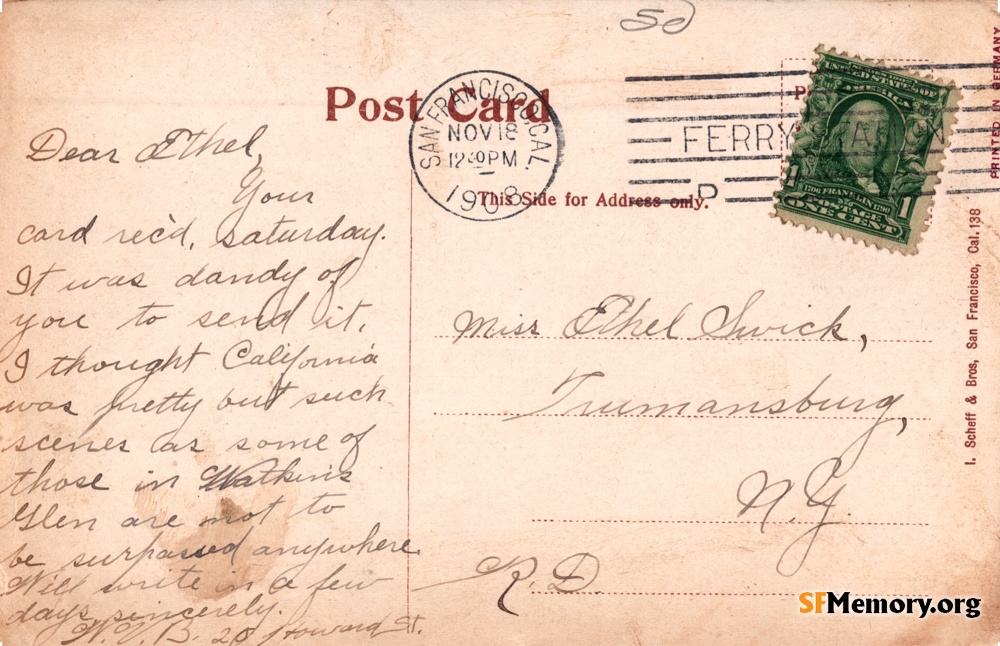 50
Post Card
SAN FRANCISCO, CAL.
NOV 18
12 30 PM
1908
FERRY STATION
D
This Side for Address only.
UNITED STATES OF
AMERICA
1706 FRANKLIN 1790
POSTAGE
1 ONE CENT 1
PRINTED IN GERMANY
I. Scheff & Bros, San Francisco, Cal. 138
Dear Ethel,
Your
card rec'd, Saturday.
It was dandy of
you to send it.
I thought California
was pretty but such
scenes as some of
those in Watkins
Glen are not to
be surpassed anywhere
Will write in a few
days, sincerely.
B. 20 Howard St.
Miss Ethel Swick,
Trumansburg,
N.Y.
R.D.
SFMemory.org